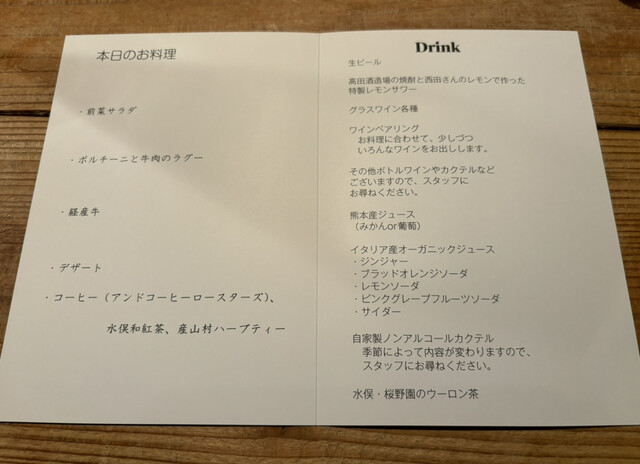 本日のお料理
・前菜サラダ
・ポルチーニと牛肉のラグー
・経産牛
・デザート
・コーヒー（アンドコーヒーロースターズ）、
水俣和紅茶、産山村ハーブティー
Drink
生ビール
高田酒造場の焼酎と西田さんのレモンで作った
特製レモンサワー
グラスワイン各種
ワインペアリング
お料理に合わせて、少しづつ
いろんなワインをお出しします。
その他ボトルワインやカクテルなど
ございますので、スタッフに
お尋ねください。
熊本産ジュース
（みかんor葡萄）
イタリア産オーガニックジュース
・ジンジャー
・ブラッドオレンジソーダ
・レモンソーダ
・ピンクグレープフルーツソーダ
・サイダー
自家製ノンアルコールカクテル
季節によって内容が変わりますので、
スタッフにお尋ねください。
水俣・桜野園のウーロン茶